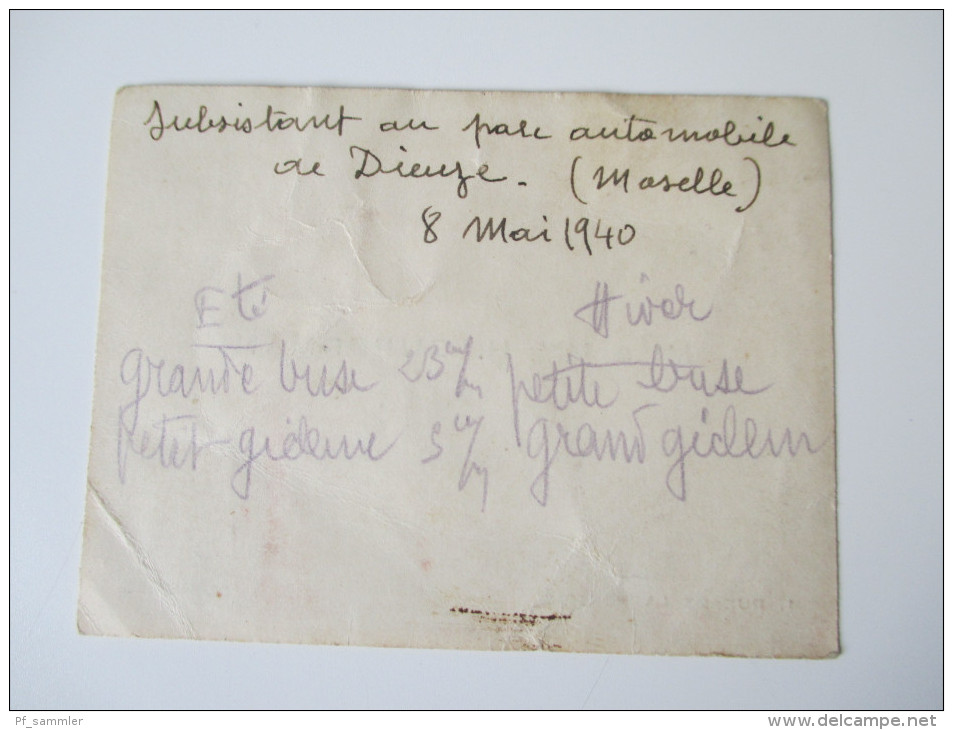 Subsistant au parc automobile
de Dieuze. (Moselle)
8 Mai 1940
Eté Hiver
grande buse 23 petite buse
petit gicleur 5 grand gicleur
Pf_sammler
www.delcampe.net